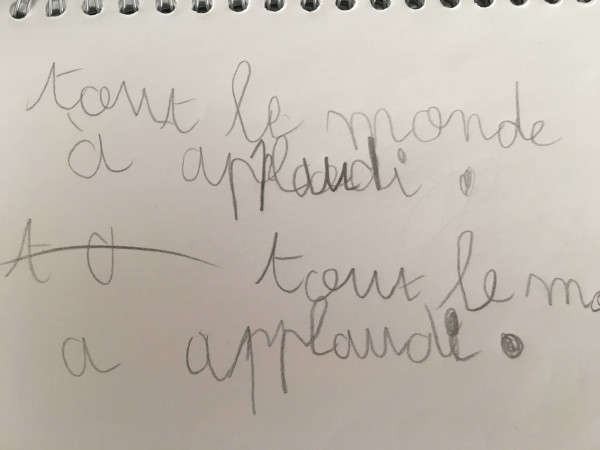 tout le monde
à applaudi.
t o tout le mo
a applaudi.